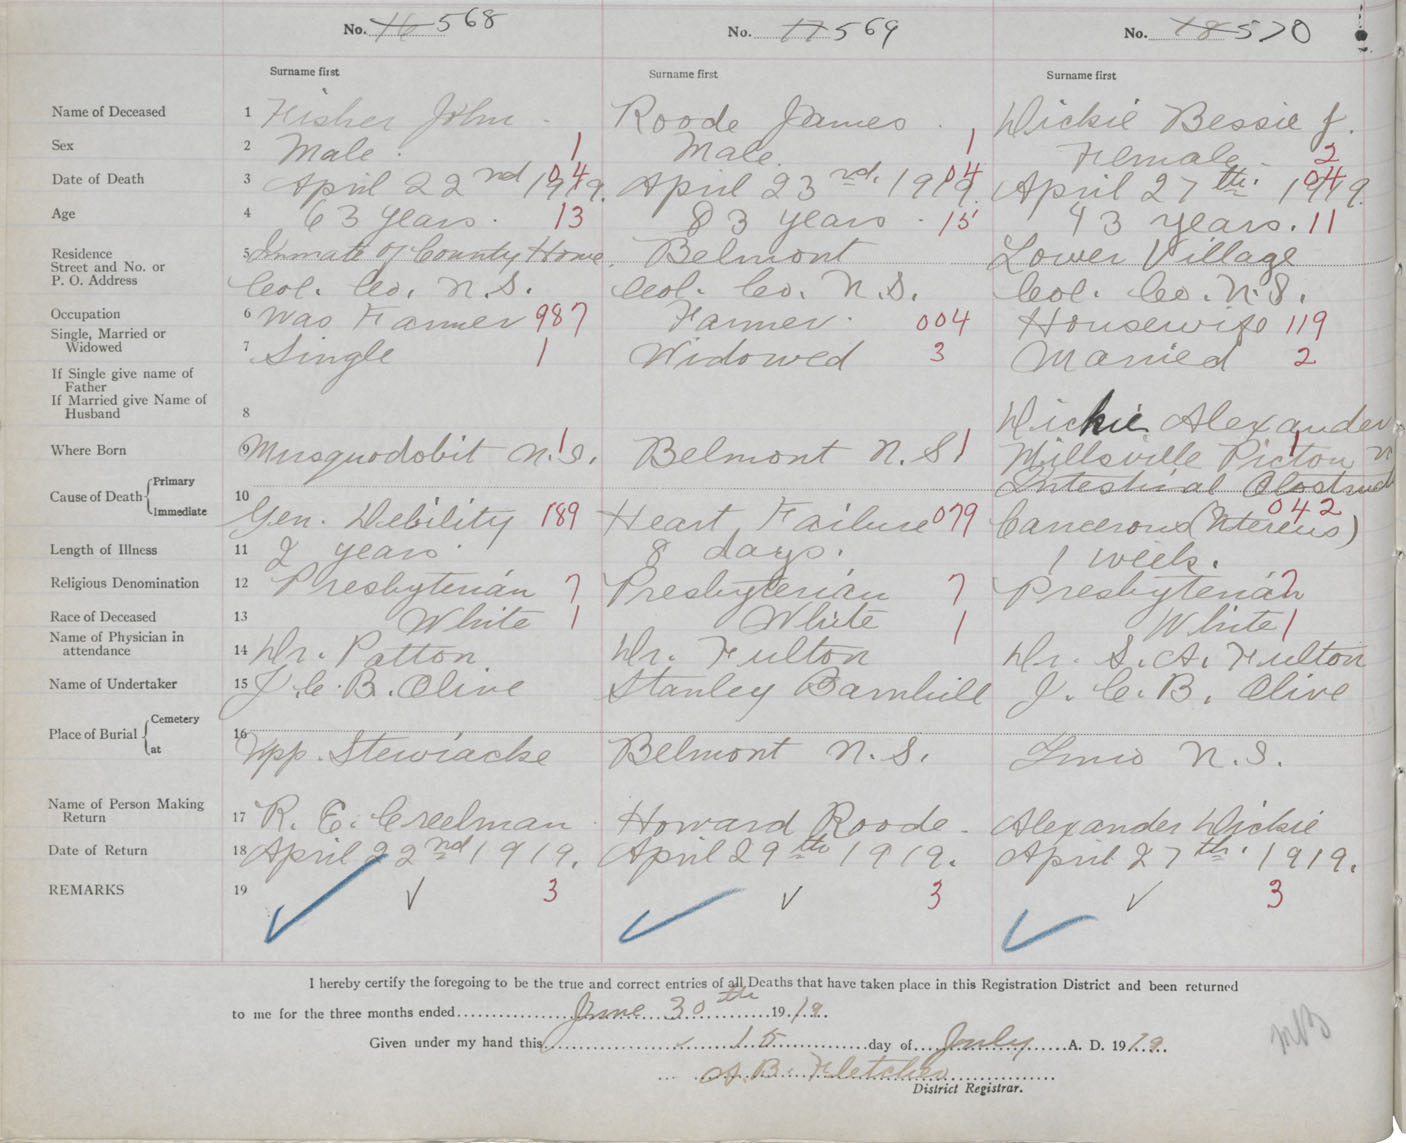 No. 16 568 No. 17 569 No. 18 570
Surname first Surname first Surname first
Name of Deceased 1 Fisher John. Roode James. Dickie Bessie J.
Sex 2 Male. 1 Male. 1 Female. 2
Date of Death 3 April 22nd 1919. 04 April 23rd. 1919. 04 April 27th. 1919. 04
Age 4 63 years. 13 83 years. 15 43 years. 11
Residence
Street and No. or
P. O. Address
5 Inmate of County Home. Belmont Lower Village
Col. Co. N.S. Col. Co. N.S. Col. Co. N.S.
Occupation 6 Was Farmer 987 Farmer. 004 Housewife 119
Single, Married or
Widowed
7 Single 1 Widowed 3 Married 2
If Single give name of
Father
If Married give Name of
Husband
8 Dickie Alexander
Where Born 9 Musquodobit N.S. 1 Belmont N.S 1 Millsville Picton N 1
Cause of Death Primary Immediate 10 Intestinal Obstruct
Gen. Debility 189 Heart Failure 079 Cancerous (Uterus) 042
Length of Illness 11 2 years. 8 days. 1 week.
Religious Denomination 12 Presbyterian 7 Presbyterian 7 Presbyterian 7
Race of Deceased 13 White 1 White 1 White 1
Name of Physician in
attendance
14 Dr. Patton Dr. Fulton Dr. S. A. Fulton
Name of Undertaker 15 J. C. B. Olive Stanley Barnhill J. C. B. Olive
Place of Burial Cemetery at 16
Upp. Stewiacke Belmont N. S. Truro N. S.
Name of Person Making
Return
17 R. E. Creelman Howard Roode. Alexander Dickie
Date of Return 18 April 22nd 1919. April 29th 1919. April 27th. 1919.
REMARKS 19 3 3 3
I hereby certify the foregoing to be the true and correct entries of all Deaths that have taken place in this Registration District and been returned
to me for the three months ended June 30th 1919.
Given under my hand this 15 day of July A. D. 1919.
A. B. Fletcher
District Registrar.